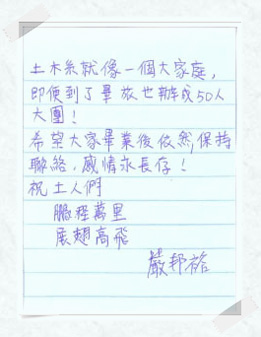 土木系就像一個大家庭，
即便到了畢旅也辦成50人
大團！
希望大家畢業後依然保持
聯絡，感情永長存！
祝土人們
鵬程萬里
展翅高飛
嚴邦祐